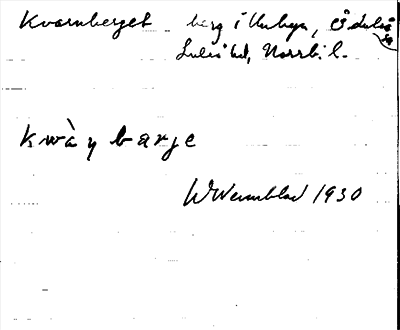 Kvarnberget berg i Unbyn, Ö. Luleå sn
Luleå td, Norrb. l.
kwàn barje
W Wennblad 1930